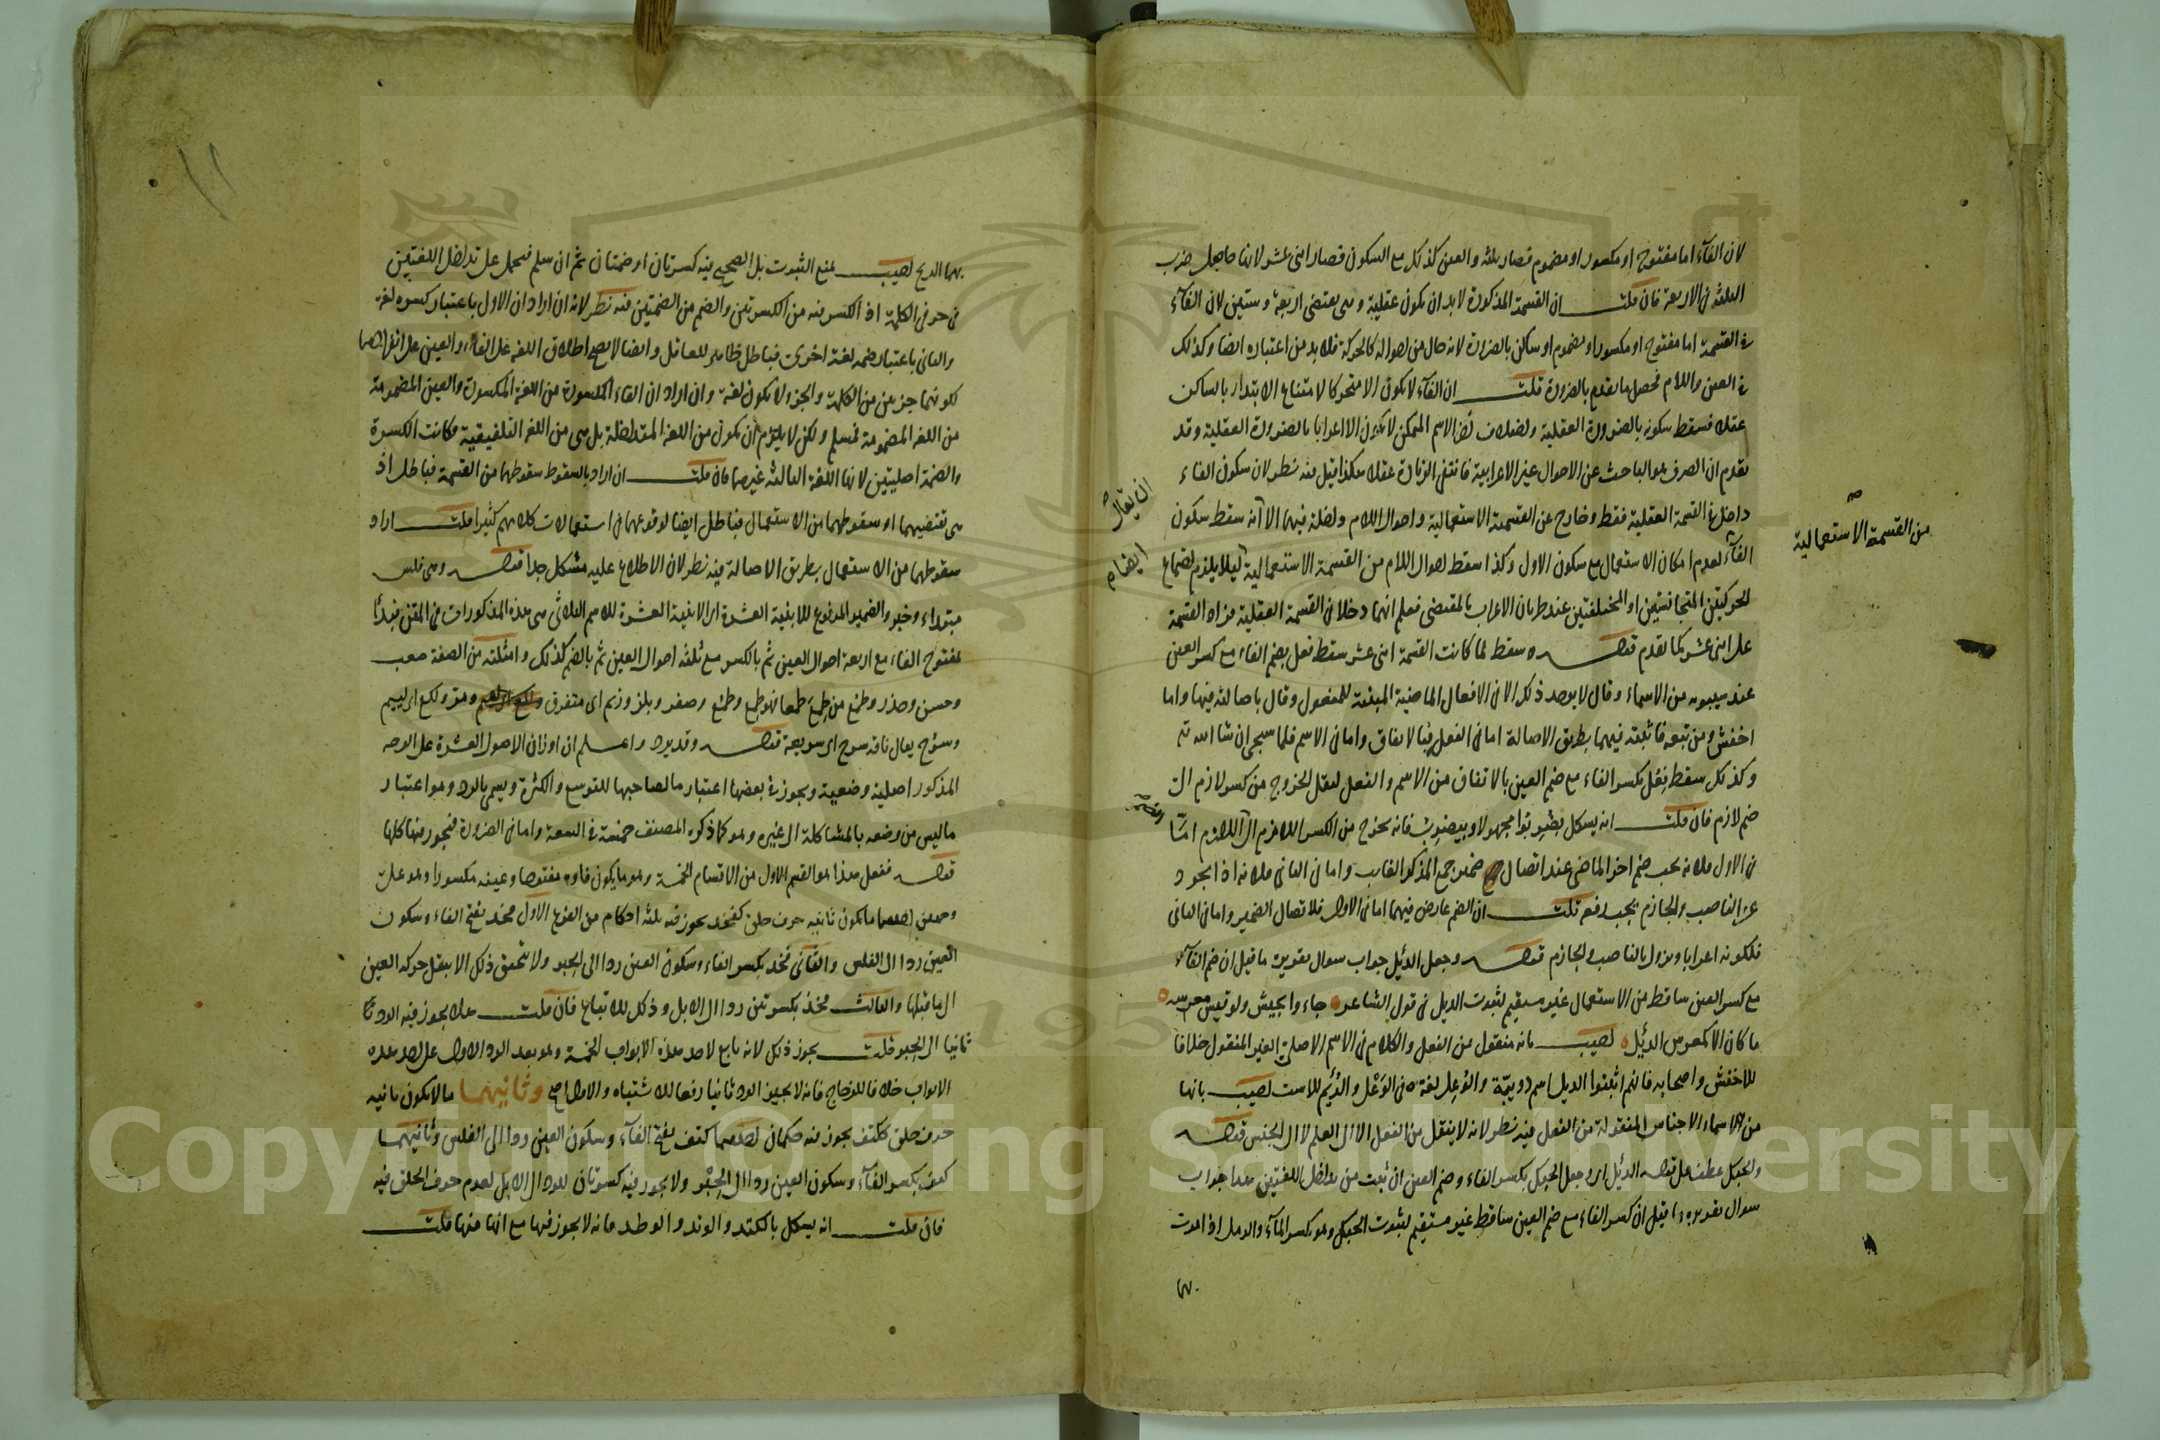 لان الفآء اما مفتوح او مكسور او مضموم فصار ثلثة والعين كذلك مع السكون فصار اثنى عشر لانها حاصل ضرب
الثلثة فى الاربعة فان قلت ان القسمة المذكورة لابد ان يكون عقلية وهى يقتضى اربعة وستين لان الفآء
فى القسمة اما مفتوح او مكسور او مضموم او ساكن بالضرورة لانه حال من احواله كالحركة فلا بد من اعتباره ايضا وكذلك
فى العين واللام فحصل ما يقدم بالضرورة قلت ان الفآء لا يكون الا متحركا لامتناع الابتداء بالساكن
عقلا فسقط سكونه بالضرورة العقلية واختلاف اخر الاسم الممكن لا يكون الا اعرابا بالضرورة العقلية وقد
تقدم ان الصرف هو الباحث عن الاحوال غير الاعرابية فانتفى الزيادة عقلا هكذا قيل فيه نظر لان سكون الفاء
داخل فى القسمة العقلية فقط وخارج عن القسمة الاستعمالية واحوال اللام داخلة فيهما الا انه سقط سكون
الفآء لعدم امكان الاستعمال مع سكون الاول وكذا سقط احوال اللام من القسمة الاستعمالية ليلا يلزم اجتماع
الحركتين المتجانستين او المختلفتين عند طريان الاعراب بالمقتضى فعلم انهما دخلا فى القسمة العقلية فزاد القسمة
على اثنى عشر كما تقدم قوله وسقط لما كانت القسمة اثنى عشر سقط فعل بضم الفاء مع كسر العين
عند سيبويه من الاسماء وقال لا يوجد ذلك الا فى الافعال الماضية المبنية للمفعول وقال باصالته فيها واما
اخفش ومن تبعه فاثبته فيهما بطريق الاصالة اما فى الفعل فبالاتفاق واما فى الاسم فلما سيجئ ان شا الله تع
وكذلك سقط فِعُل بكسر الفاء مع ضم العين بالاتفاق من الاسم والفعل لثقل الخروج من كسر لازم الى
ضم لازم فان قلت انه يشكل بضربوا مجهولا وبيضرب فانه يخرج من الكسر اللازم الى اللازم امّا
فى الاول فلانه يجب ضم اخر الماضى عند اتصال ضمير جمع المذكر الغايب واما فى الثانى فلانه اذا تجرد
عن الناصب والجازم يجب رفعه قلت ان الضم عارض فيهما اما فى الاول فلاتصال الضمير واما فى الثانى
فلكونه اعرابا ويزول بالناصب والجازم قوله وجعل الدئل جواب سوال تقديره ما قيل ان ضم الفآء
مع كسر العين ساقط من الاستعمال غير مستقيم لثبوت الديل فى قول الشاعر جاءوا بجيش لو قيس معرسه
ما كان الا كمعرس الدئِل اجيب بانه منقول من الفعل والكلام فى الاسم الاصلى الغير المنقول خلافا
للاخفش واصحابه فانهم اثبتوا الديل اسم دويبّة والوُعِل لغة فى الوَعْل والرُئِم للاست اجيب بانها
من الاسماء الاجناس المنقولة من الفعل فيه نظر لانه لا ينقل من الفعل الا الى العلم لا الى الجنس قوله
والحبك عطف على قوله الدئل اى وجعل الحبك بكسر الفاء وضم العين ان ثبت من تداخل اللغتين هذا جواب
سوال تقديره ما قيل ان كسر الفاء مع ضم العين ساقط غير مستقيم لثبوت الحبك وهو تكسر المآء والرمل اذا مرت
بها
من القسمة الاستعمالية
ان يقال
بهما الريح اجيب بمنع الثبوت بل الصحيح فيه كسرتان او ضمتان ثم ان سلم فيحمل على تداخل اللغتين
فى حرفى الكلمة اذ الكسر فيه من الكسرتين والضم من الضمتين فيه نظر لانه ان اراد ان الاول باعتبار كسره لغة
والثانى باعتبار ضمه لغة اخرى فباطل ظاهر للعاقل وايضا لا يصح اطلاق اللغة على الفاء والعين على انفرادهما
لكونهما جزءين من الكلمة والجزء لا يكون لغة وان اراد ان الفاء المكسورة من اللغة المكسورة والعين المضمومة
من اللغة المضمومة فمسلم ولكن لا يلزم ان يكون من اللغة المتداخلة بل هى من اللغة التلفيقية وكانت الكسرة
والضمة اصليتين لانها اللغة الثالثة غيرهما فان قلت ان اراد بالسقوط سقوطهما من القسمة فباطل اذ
هى تقتضيهما او سقوطهما من الاستعمال فباطل ايضا لوقوعهما فى استعمالات كلامهم كثيرا قلت اراد
سقوطهما من الاستعمال بطريق الاصالة فيه نظر لان الاطلاع عليه مشكل جدا قوله وهى فلس
مبتداء وخبر والضمير المرفوع للابنية العشرة اى الابنية العشرة للاسم الثلاثى هى هذه المذكورات فى المتن فبدأ
بمفتوح الفاء مع اربعة احوال العين ثم بالكسر مع ثلثة احوال العين ثم بالضم كذلك وامثلته من الصفة صعب
وحسن وحذر وطمُع من طمِع طمعا فهو طمِع وطمُع وصفر وبلز وزيم اى متفرق ومر ولكع اى لييم
وسرُح يقال ناقة سرح اى سريعة قوله وقد يرد واعلم ان اوزان الاصول العشرة على الوجه
المذكور اصلية وضعية ويجوز فى بعضها اعتبار ما لصاحبها للتوسع والكثرة ويسمى بالرد وهو اعتبار
ما ليس من وضعه بالمشاكلة الى غيره وهو كما ذكره المصنف خمسة فى السعة واما فى الضرورة فيجوز فيها كلها
قوله ففعل هذا هو القسم الاول من الاقسام الخمسة وهو ما يكون فاوه مفتوحا وعينه مكسورا وهو على
وجهين احدهما ما يكون ثانيه حرف حلق كفخذ يجوز فيه ثلثة احكام من الفرع الاول فخذ بفتح الفاء وسكون
العين ردا الى الفلس والثانى فخذ بكسر الفاء وسكون العين ردا الى الحبر ولا يتحقق ذلك الا بنقل حركة العين
الى ما قبلها والثالث فخذ بكسرتين ردا الى الابل وذلك للاتباع فان قلت هلا يجوز فيه الرد
ثانيا الى الحبر قلت يجوز ذلك لانه تابع لاحد هذه الابواب الخمسة وهو بعد الرد الاول على احد هذه
الابواب خلافا للزجاج فانه لا يجيز الرد ثانيا رفعا للاشتباه والاول اصح وثانيهما ما لا يكون ثانيه
حرف حلق ككتف يجوز فيه حكمان احدهما كتف بفتح الفآء وسكون العين ردا الى الفلس وثانيهما
كتف بكسر الفآء وسكون العين ردا الى الحِبْر ولا يجوز فيه كسرتان للرد الى الابل لعدم حرف الحلق فيه
فان قلت انه يشكل بالكتد والوتد والوطد فانه لا يجوز فيها مع انها منها قلت